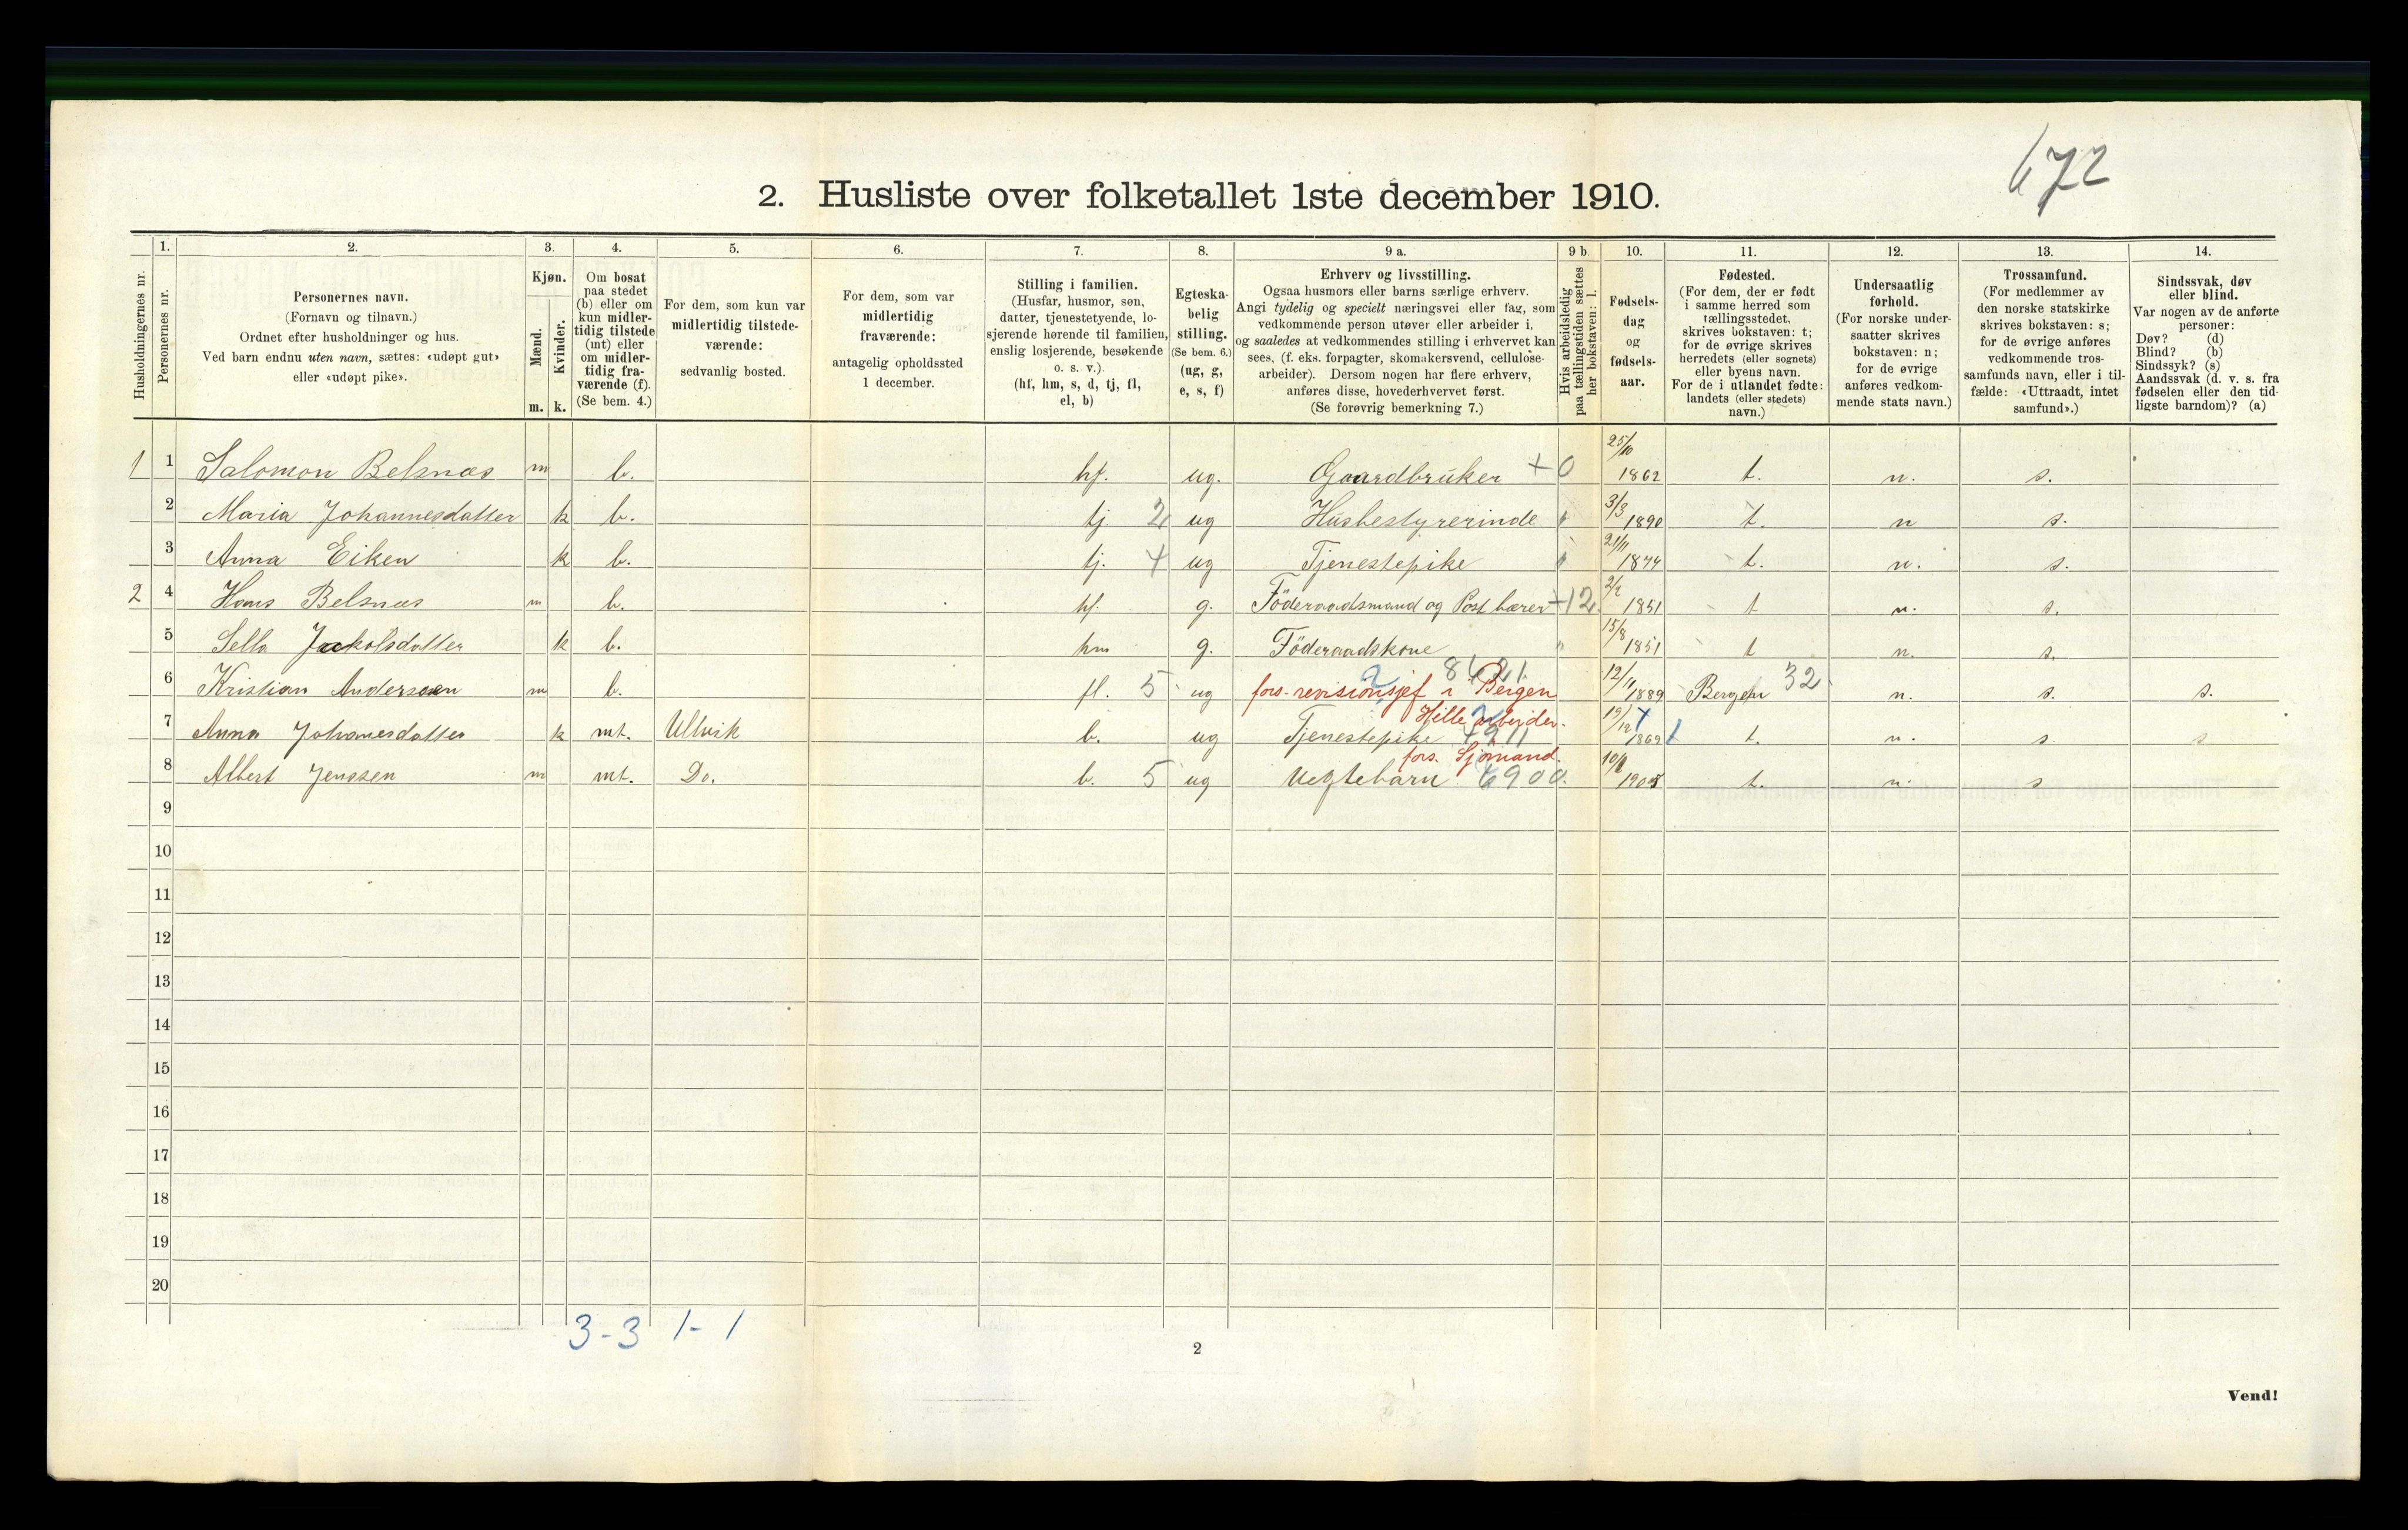 672
2. Husliste over folketallet 1ste december 1910.
Husholdningernes nr.
1. Personernes nr.
2. Personernes navn. (Fornavn og tilnavn.) Ordnet efter husholdninger og hus. Ved barn endnu uten navn, sættes: «udøpt gut» eller «udøpt pike».
3. Kjøn. Mænd. m. Kvinder. k.
4. Om bosat paa stedet (b) eller om kun midlertidig tilstede (mt) eller om midlertidig fraværende (f). (Se bem. 4.)
5. For dem, som kun var midlertidig tilstedeværende: sedvanlig bosted.
6. For dem, som var midlertidig fraværende: antagelig opholdssted 1 december.
7. Stilling i familien. (Husfar, husmor, søn, datter, tjenestetyende, losjerende hørende til familien, enslig losjerende, besøkende o. s. v.). (hf, hm, s, d, tj, fl, el, b)
8. Egteskabelig stilling. (Se bem. 6.) (ug, g, e, s, f)
9 a. Erhverv og livsstilling. Ogsaa husmors eller barns særlige erhverv. Angi tydelig og specielt næringsvei eller fag, som vedkommende person utøver eller arbeider i, og saaledes at vedkommendes stilling i erhvervet kan sees, (f. eks. forpagter, skomakersvend, cellulosearbeider). Dersom nogen har flere erhverv, anføres disse, hovederhvervet først. (Se forøvrig bemerkning 7.)
9 b. Hvis arbeidsledig paa tællingstiden sættes her bokstaven: l.
10. Fødselsdag og fødselsaar.
11. Fødested. (For dem, der er født i samme herred som tællingsstedet, skrives bokstaven: t; for de øvrige skrives herredets (eller sognets) eller byens navn. For de i utlandet fødte: landets (eller stedets) navn.)
12. Undersaatlig forhold. (For norske undersaatter skrives bokstaven: n; for de øvrige anføres vedkommende stats navn.)
13. Trossamfund. (For medlemmer av den norske statskirke skrives bokstaven: s; for de øvrige anføres vedkommende trossamfunds navn, eller i tilfælde: «Uttraadt, intet samfund».)
14. Sindssvak, døv eller blind. Var nogen av de anførte personer: Døv? (d) Blind? (b) Sindssyk? (s) Aandssvak (d. v. s. fra fødselen eller den tidligste barndom)? (a)
1 1 Salomon Belsnæs m b. hf. ug. Gaardbruker +0 25/10 1862 t. n. s.
2 Maria Johannesdatter k b. tj. 2 ug Husbestyrerinde 3/3 1890 t. n s.
3 Anna Eiken k b. tj. 4 ug Tjenestepike 21/11 1874 t. n. s.
2 4 Hans Belsnæs m b. hf. g. Föderaadsmand og Postbærer +12 2/2 1851 t n. s.
5 Sella Jackobsdatter k b. hm g. Föderaadskone " 15/8 1851 t n. s.
6 Kristian Anderssen m b. fl. 5 ug fors. revisionsjef i Bergen 12/11 1889 Bergen 32 n. s. s.
Hille arbeider.
7 Anna Johanesdatter k mt. Ullvik b. ug Tjenestepike 19/12 1869 t. n. s. s
fors. Sjömand.
8 Albert Jenssen m mt. Do. b. 5 ug Uegtebarn 6900. t. n. s
9
10
11
12
13
14
15
16
17
18
19
20
3-3 1-1
2
Vend!